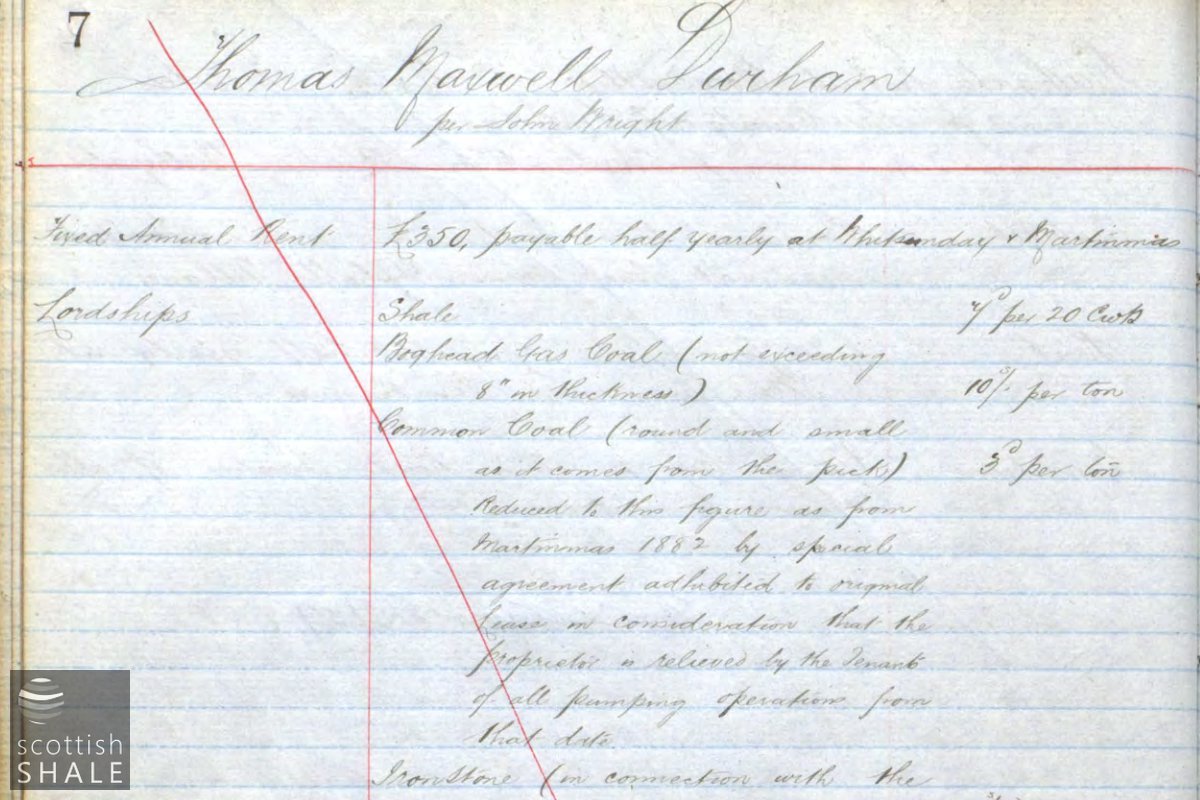 7
Thomas Maxwell Durham
per John Wright
Fixed Annual Rent £350, payable half yearly at Whitsunday & Martinmas
Lordships Shale 7d per 20 Cwts
Boghead Gas Coal (not exceeding
8" in thickness) 10/. per ton
Common Coal (round and small
as it comes from the pick) 3d per ton
Reduced to this figure as from
Martinmas 1882 by special
agreement adhibited to original
Lease in consideration that the
proprietor is relieved by the Tenants
of all pumping operations from
that date.
Ironstone (in connection with the
scottish
SHALE